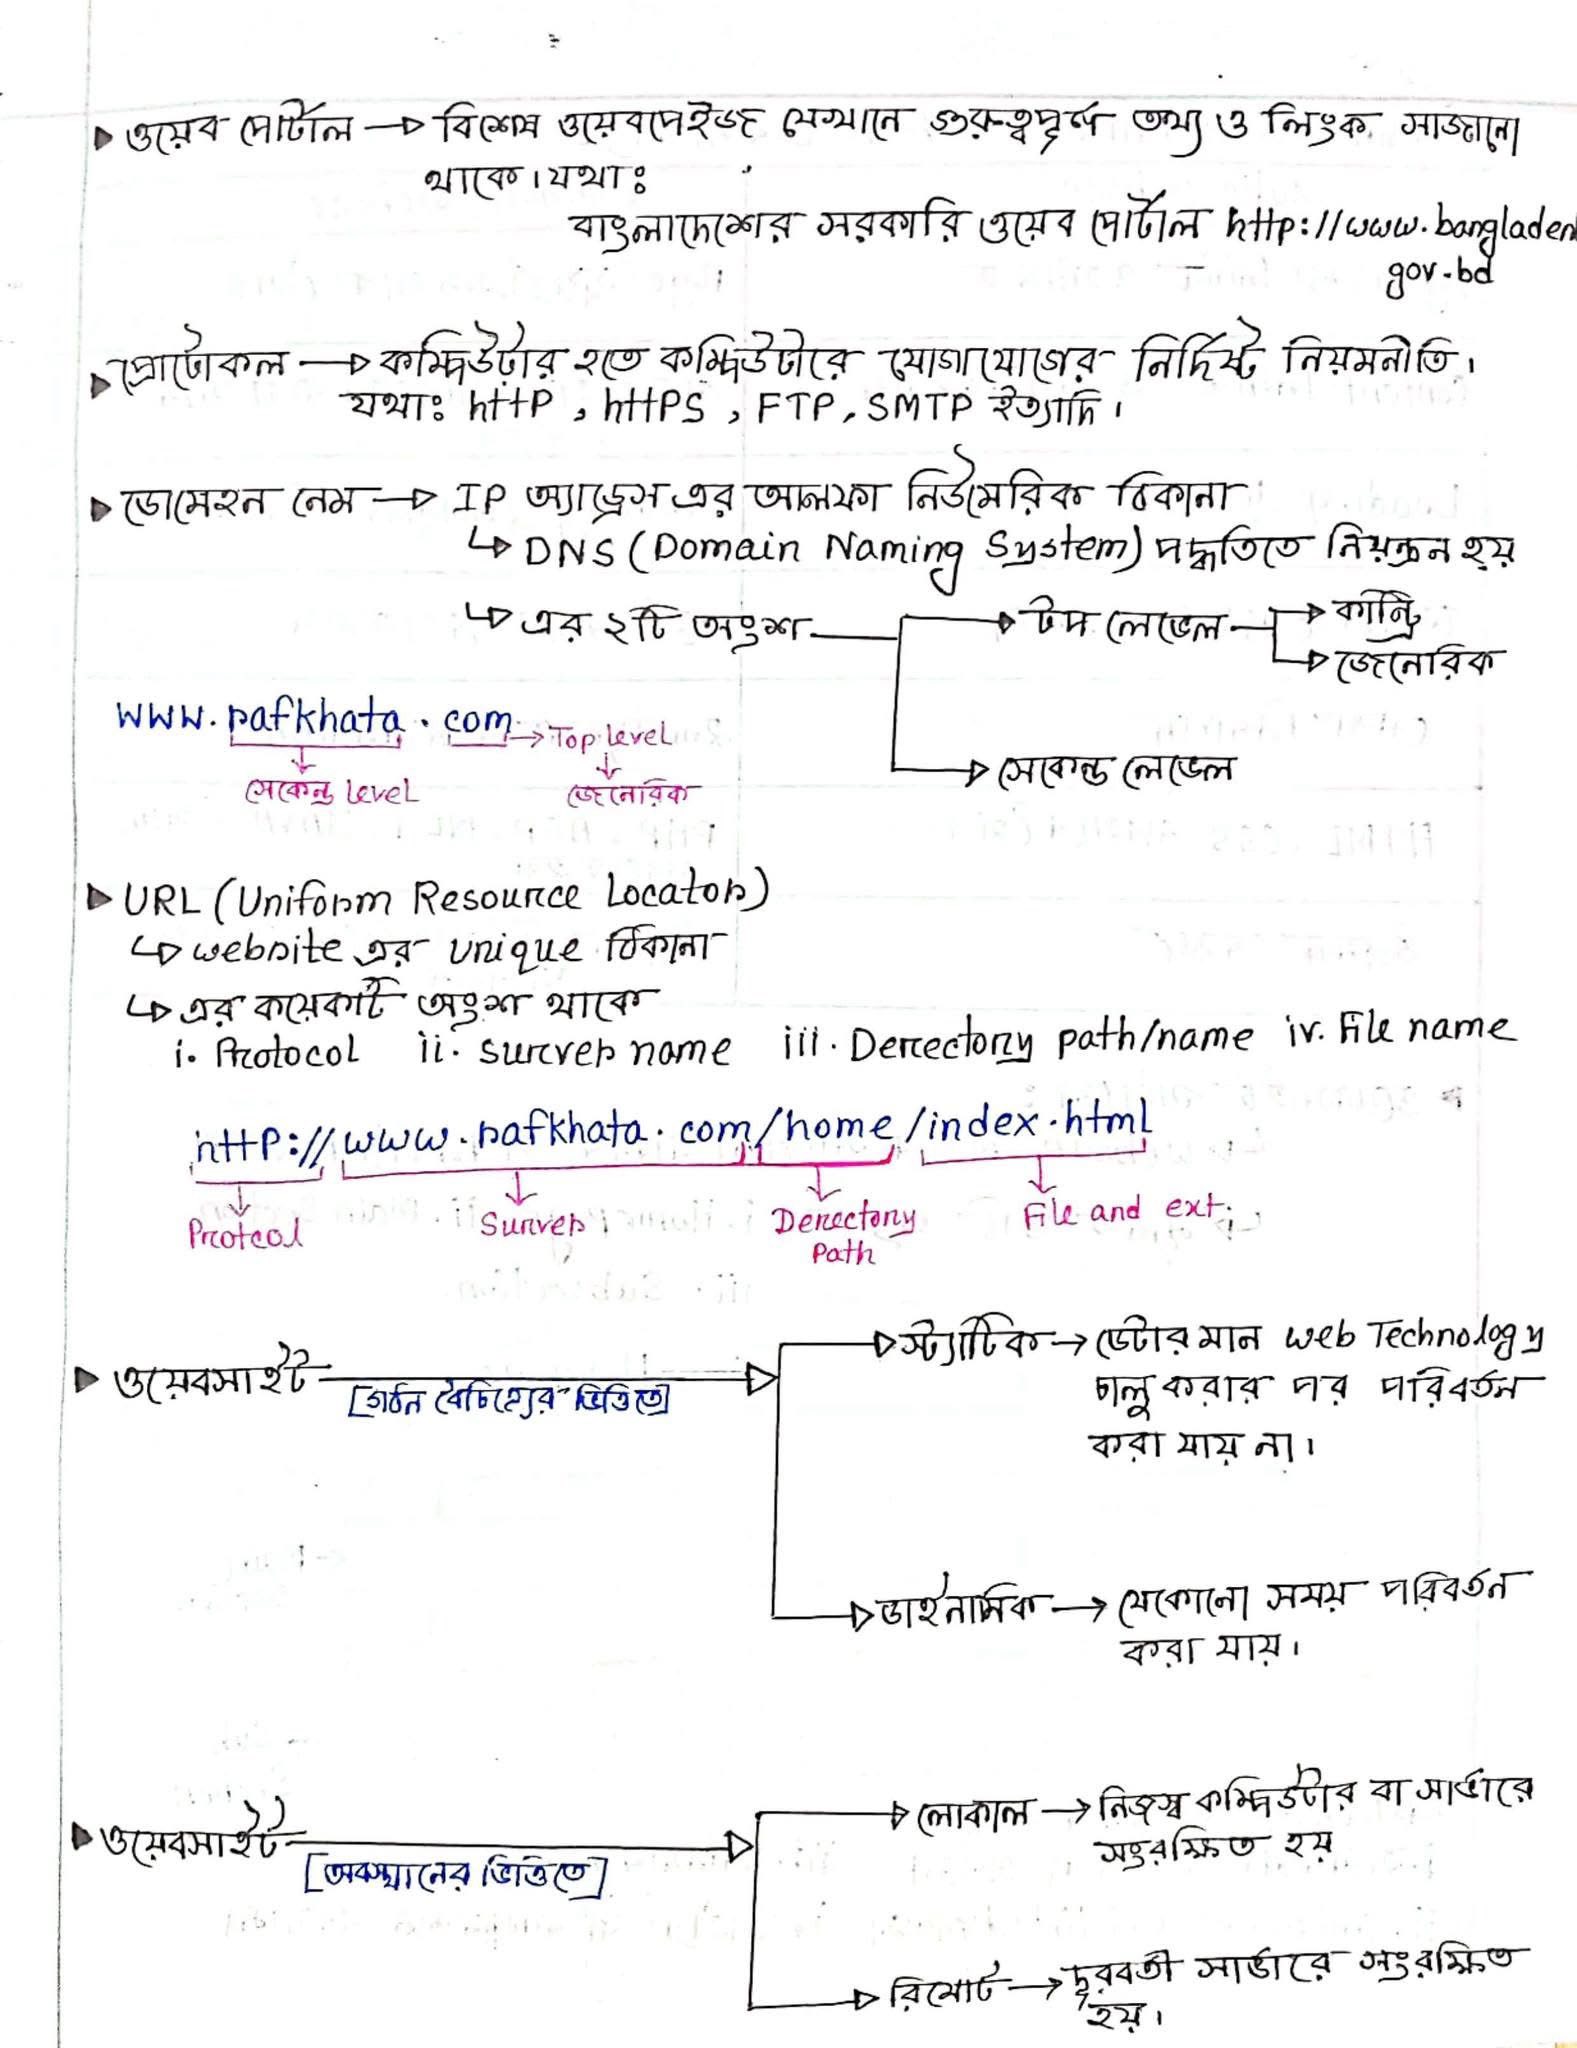 ওয়েব পোর্টাল → বিশেষ ওয়েবপেইজ যেখানে গুরুত্বপূর্ণ তথ্য ও লিংক সাজানো
থাকে। যথাঃ
বাংলাদেশের সরকারি ওয়েব পোর্টাল http://www.bangladen
gov.bd
প্রোটোকল → কম্পিউটার হতে কম্পিউটারে যোগাযোগের নির্দিষ্ট নিয়মনীতি।
যথাঃ httP, httPS, FTP, SMTP ইত্যাদি।
ডোমেইন নেম → IP অ্যাড্রেস এর আলফা নিউমেরিক ঠিকানা
↳ DNS (Domain Naming System) পদ্ধতিতে নিয়ন্ত্রন হয়
↳ এর ২টি অংশ → টপ লেভেল → কান্ট্রি
জেনেরিক
www.rafkhata.com → Top level
সেকেন্ড লেভেল
সেকেন্ড level জেনেরিক
URL (Uniform Resource Locator)
↳ website এর unique ঠিকানা
↳ এর কয়েকটি অংশ থাকে
i. Protocol ii. Surver name iii. Derectory path/name iv. File name
httP://www.rafkhata.com/home/index.html
Protcol Surver Derectory File and ext.
Path
ওয়েবসাইট → স্ট্যাটিক → ডেটার মান web Technology
[গঠন বৈচিত্র্যের ভিত্তিতে] চালু করার পর পরিবর্তন
করা যায় না।
ডাইনামিক → যেকোনো সময় পরিবর্তন
করা যায়।
ওয়েবসাইট → লোকাল → নিজস্ব কম্পিউটার বা সার্ভারে
[অবস্থানের ভিত্তিতে] সংরক্ষিত হয়
রিমোট → দূরবর্তী সার্ভারে সংরক্ষিত
হয়।